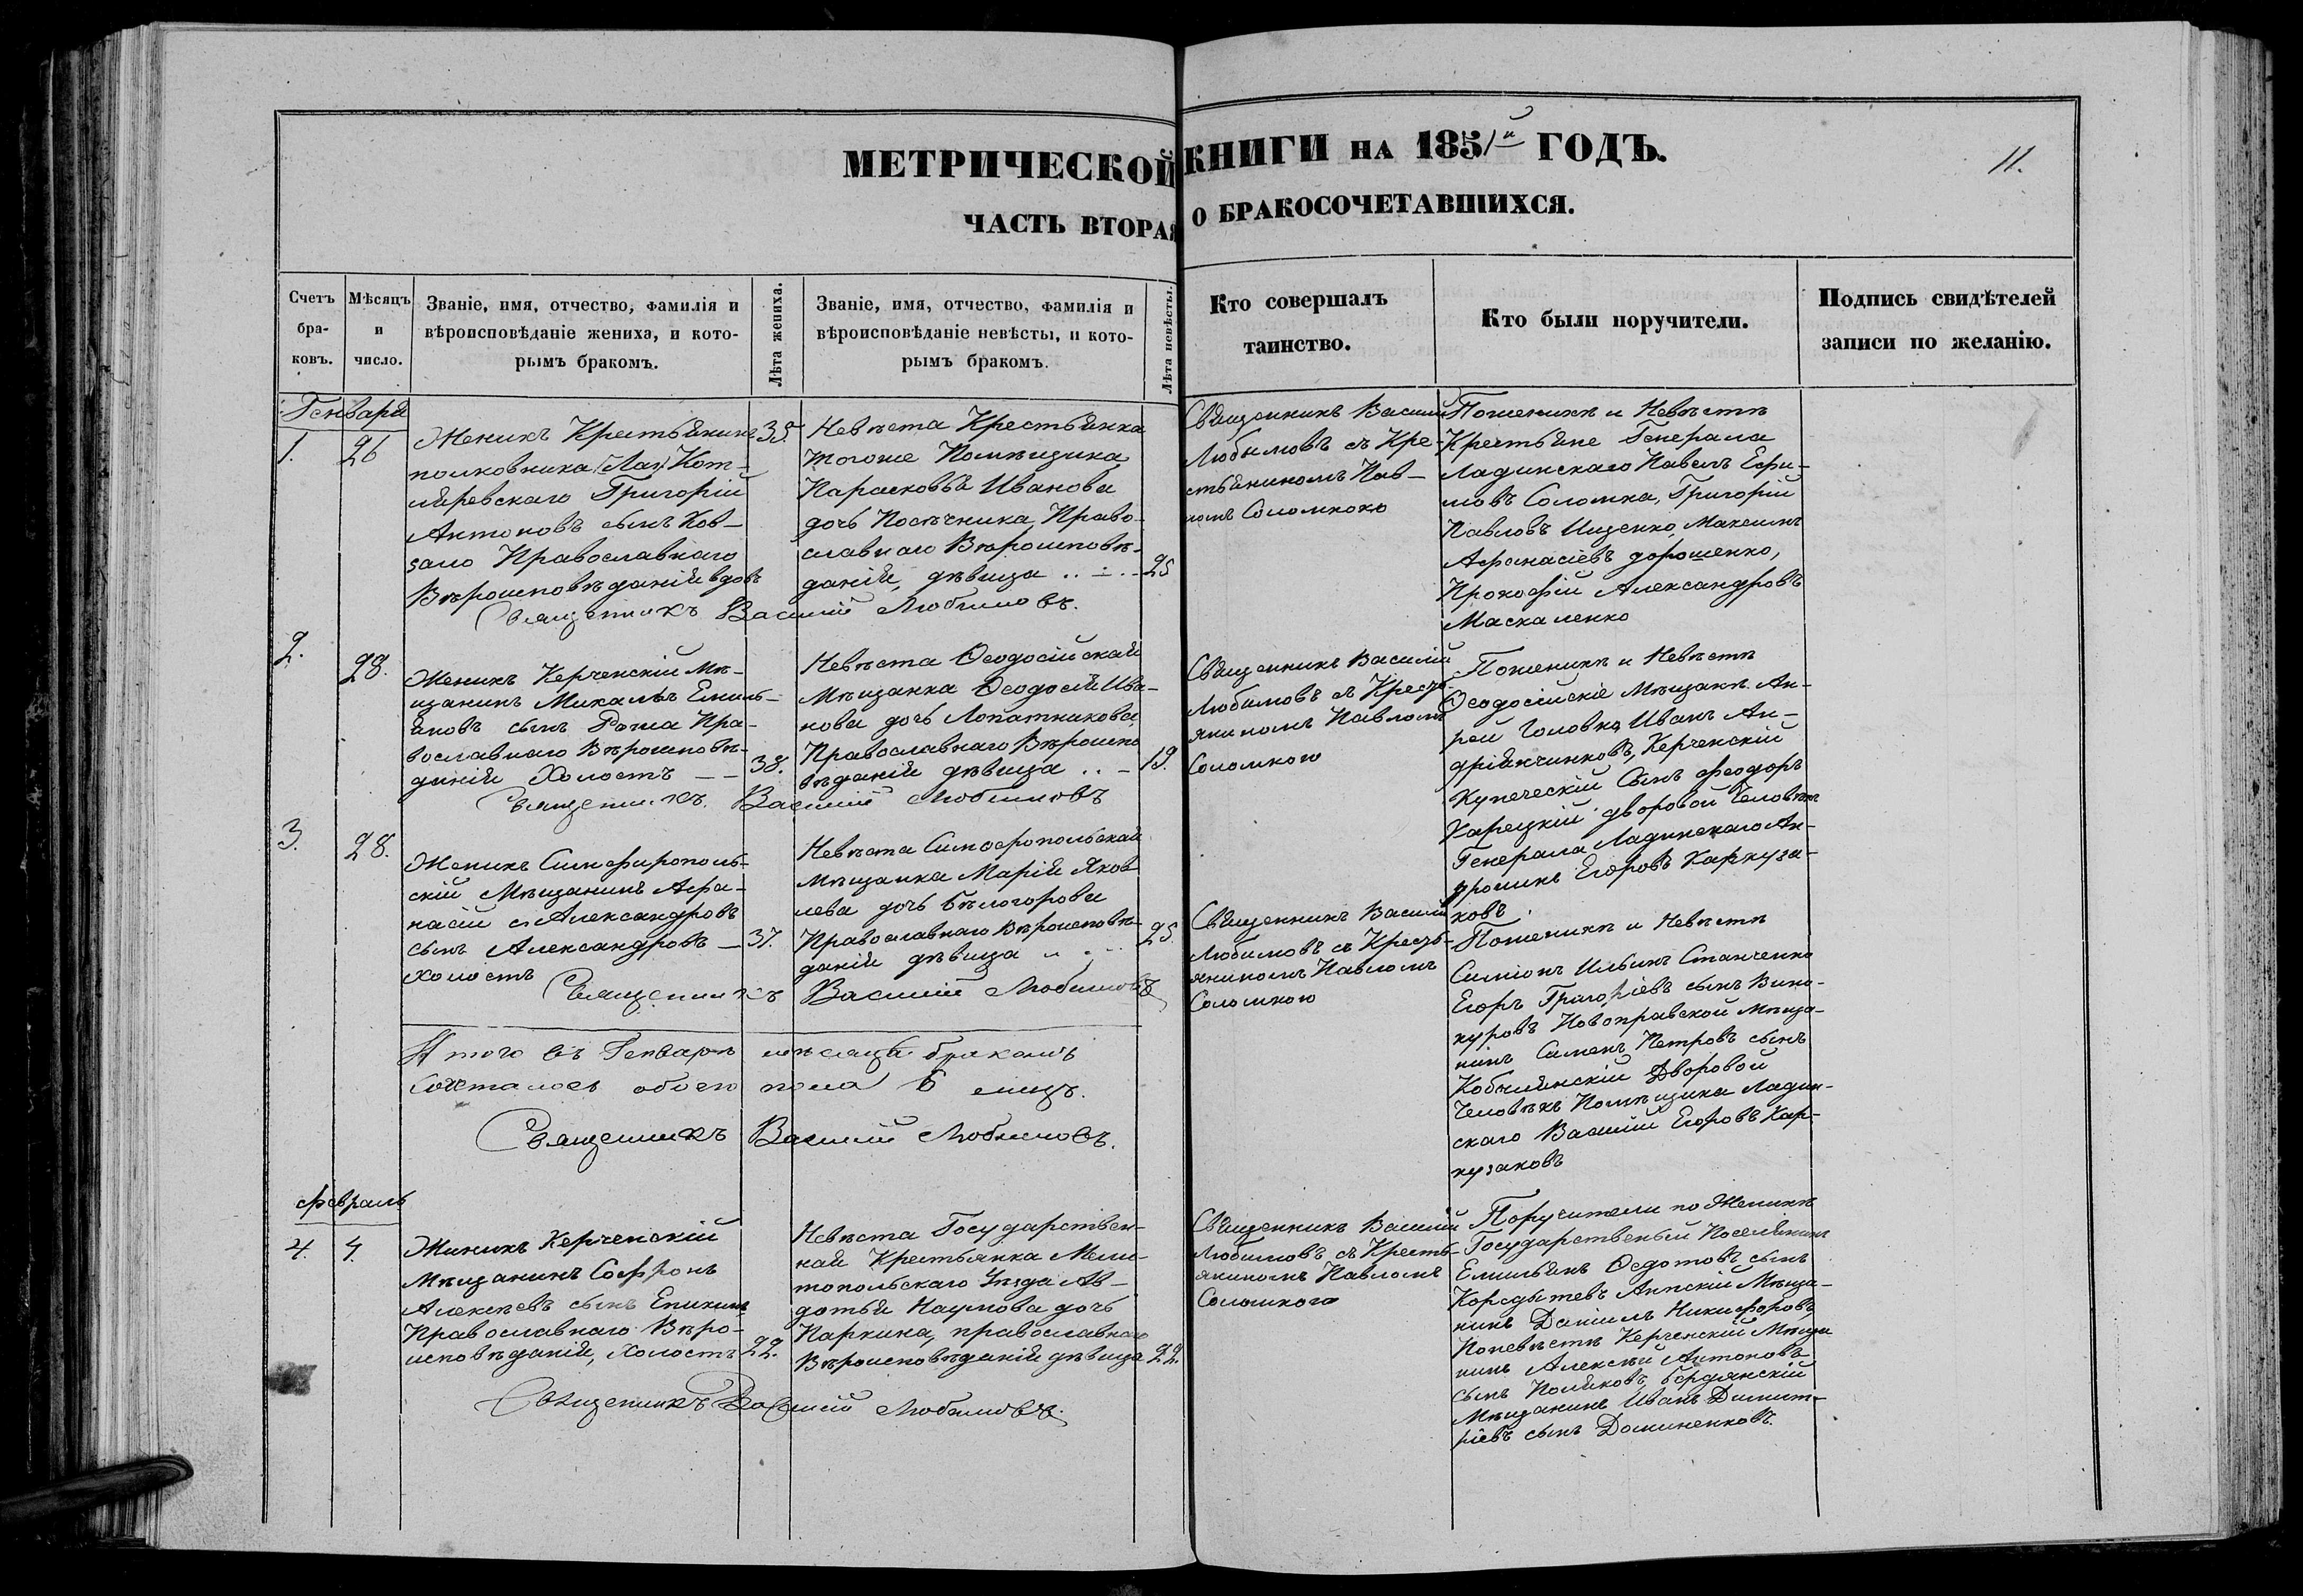 МЕТРИЧЕСКОЙ КНИГИ НА 1851й ГОДЪ.
11.
ЧАСТЬ ВТОРАЯ О БРАКОСОЧЕТАВШИХСЯ.
Счетъ
бра-
ковъ.
Мѣсяцъ
и
число.
Званіе, имя, отчество, фамилія и
вѣроисповѣданіе жениха, и кото-
рымъ бракомъ.
Лѣта жениха.
Званіе, имя, отчество, фамилія и
вѣроисповѣданіе невѣсты, и кото-
рымъ бракомъ.
Лѣта невѣсты.
Кто совершалъ
таинство.
Кто были поручители.
Подпись свидѣтелей
записи по желанію.
Генваря
1.
26
Женихъ Крестьянинъ
полковника Кот-
ляревскаго Григорій
Антоновъ сынъ Ков-
Православнаго
Вѣроисповѣданія вдовъ
35.
Невѣста Крестьянка
тогоже Помѣщика
Парасковья Иванова
дочь Посѣчника, Право-
славнаго Вѣроисповѣ-
данія, дѣвица
25
Священникъ Василій Любимовъ.
Священникъ Василій
Любимовъ съ Кре-
стьяниномъ Пав-
ломъ Соломкою
Поженихѣ и Невѣстѣ
Крестьяне Генерала
Ладинскаго Павелъ Ефи-
мовъ Соломка, Григорій
Павловъ Ищенко, Максимъ
Афанасіевъ дорошенко,
Прокофій Александровъ
Маскаленко
2.
28.
Женихъ Керченскій Мѣ-
щанинъ Михаилъ Емиль-
яновъ сынъ Пра-
вославнаго Вѣроисповѣ-
данія Холостъ
38.
Невѣста Ѳеодосійская
Мѣщанка Ѳеодосія Ива-
нова дочь Лопатникова
Православнаго Вѣроиспо
вѣданія дѣвица
19.
Священникъ Василій Любимовъ
Священникъ Василій
Любимовъ съ Кресть-
яниномъ Павломъ
Соломкою
Поженихѣ и Невѣстѣ
Ѳеодосійскіе Мѣщане Ан-
рей Головко, Иванъ Ан-
Керченскій
Купеческій Сынъ Феодоръ
Карецкій дворовой Человѣкъ
Генерала Ладинскаго Ан-
дроникъ Егоровъ Каркуза-
ковъ.
3.
28.
Женихъ Симфирополь-
скій Мѣщанинъ Афа-
насій Александровъ
сынъ Александровъ
холостъ
37.
Невѣста Симферопольская
Мѣщанка Марія Яков
лева дочь Бѣлогорова
Православнаго Вѣроисповѣ-
данія дѣвица
25.
Священникъ Василій Любимовъ
Священникъ Василій
Любимовъ съ Кресть-
яниномъ Павломъ
Соломкою
Поженихѣ и Невѣстѣ
Симіонъ Ильинъ Станченко
Егоръ Григоріевъ сынъ Вино-
куровъ Мѣща-
нинъ Семенъ Петровъ сынъ
Кобылянскій Дворовой
Человѣкъ Помѣщика Ладин-
скаго Василій Егоровъ Кар-
кузаковъ
Итого въ Генварѣ мѣсяцѣ бракомъ
Сочеталось обоего пола 6 лицъ.
Священникъ Василій Любимовъ.
февраль
4.
4.
Жинихъ Керченскій
Мѣщанинъ Софронъ
Алексѣевъ сынъ
Православнаго Вѣро-
исповѣданія, Холостъ
22.
Невѣста Государствен-
ная Крестьянка Мели-
топольскаго Уѣзда Ав-
дотья Наумова дочь
Паркина, православнаго
Вѣроисповѣданія дѣвица
22.
Священникъ Василій Любимовъ.
Священникъ Василій
Любимовъ съ Кресть-
яниномъ Павломъ
Соломкою
Поручители по Женихѣ
Государственый Поселянинъ
Емильянъ Ѳедотовъ сынъ
Мѣща-
нинъ Даніилъ Никифоровъ,
Поневѣстѣ Керченскій Мѣща
нинъ Алексѣй Антоновъ
сынъ Поляковъ, бердянскій
Мѣщанинъ Иванъ Димит-
ріевъ сынъ Доминенковъ.